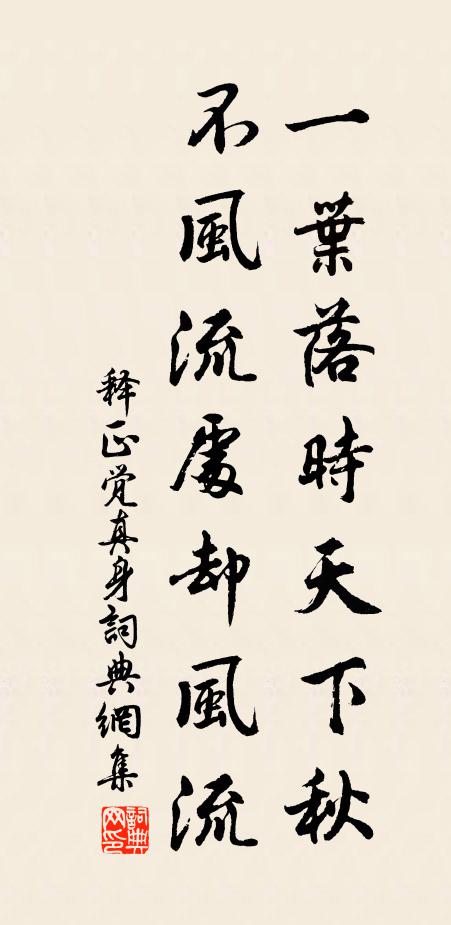 一葉落時天下秋
不風流處却風流
释正觉真身詞典網集
詞典網印